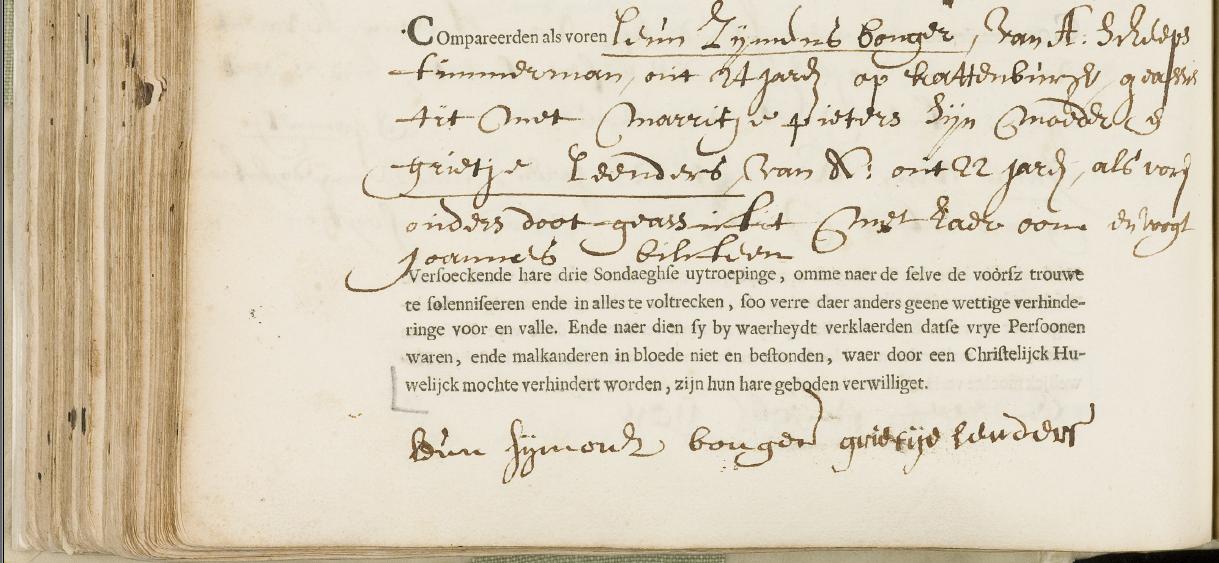 Compareerden als voren Leun Zymens bonger, van A: scheeps
timmerman, out 24 jaren op kattenburgh, geassis
tit met marritje pieters zijn moeder &
grietje Leenders, van A: out 22 jaren, als voren
ouders doot geassistit met haer oom en voogt
joannes
Versoeckende hare drie Sondaeghse uytroepinge, omme naer de selve de voorsz trouwe
te solenniseeren ende in alles te voltrecken, soo verre daer anders geene wettige verhinde-
ringe voor en valle. Ende naer dien sy by waerheydt verklaerden datse vrye Persoonen
waren, ende malkanderen in bloede niet en bestonden, waer door een Christelijck Hu-
welijck mochte verhindert worden, zijn hun hare geboden verwilliget.
Leun symonsz bonger grietije lenders